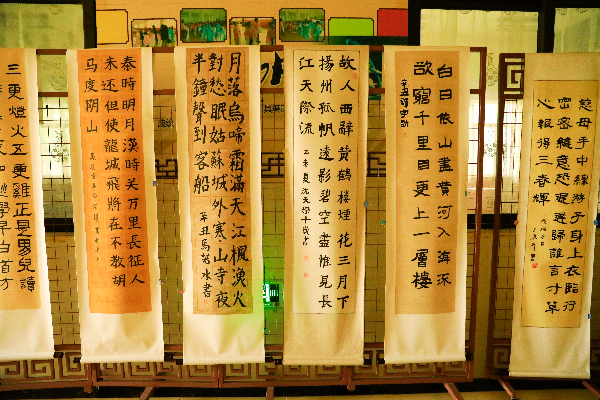 三更燈火五更雞正是男兒讀
學早白首方
秦時明月漢時萬里長征人
未還但使龍城飛將在不教胡
馬度陰山
月落烏啼霜滿天江楓漁火
對愁眠姑蘇城外寒山寺夜
半鐘聲到客船
故人西辭黄鶴樓煙花三月下
揚州孤帆遠影碧空盡惟見長
江天際流
白日依山盡黄河入海流
欲窮千里目更上一層樓
慈母手中線游子身上衣臨行
密密縫意恐遲遲歸誰言寸草
心報得三春暉